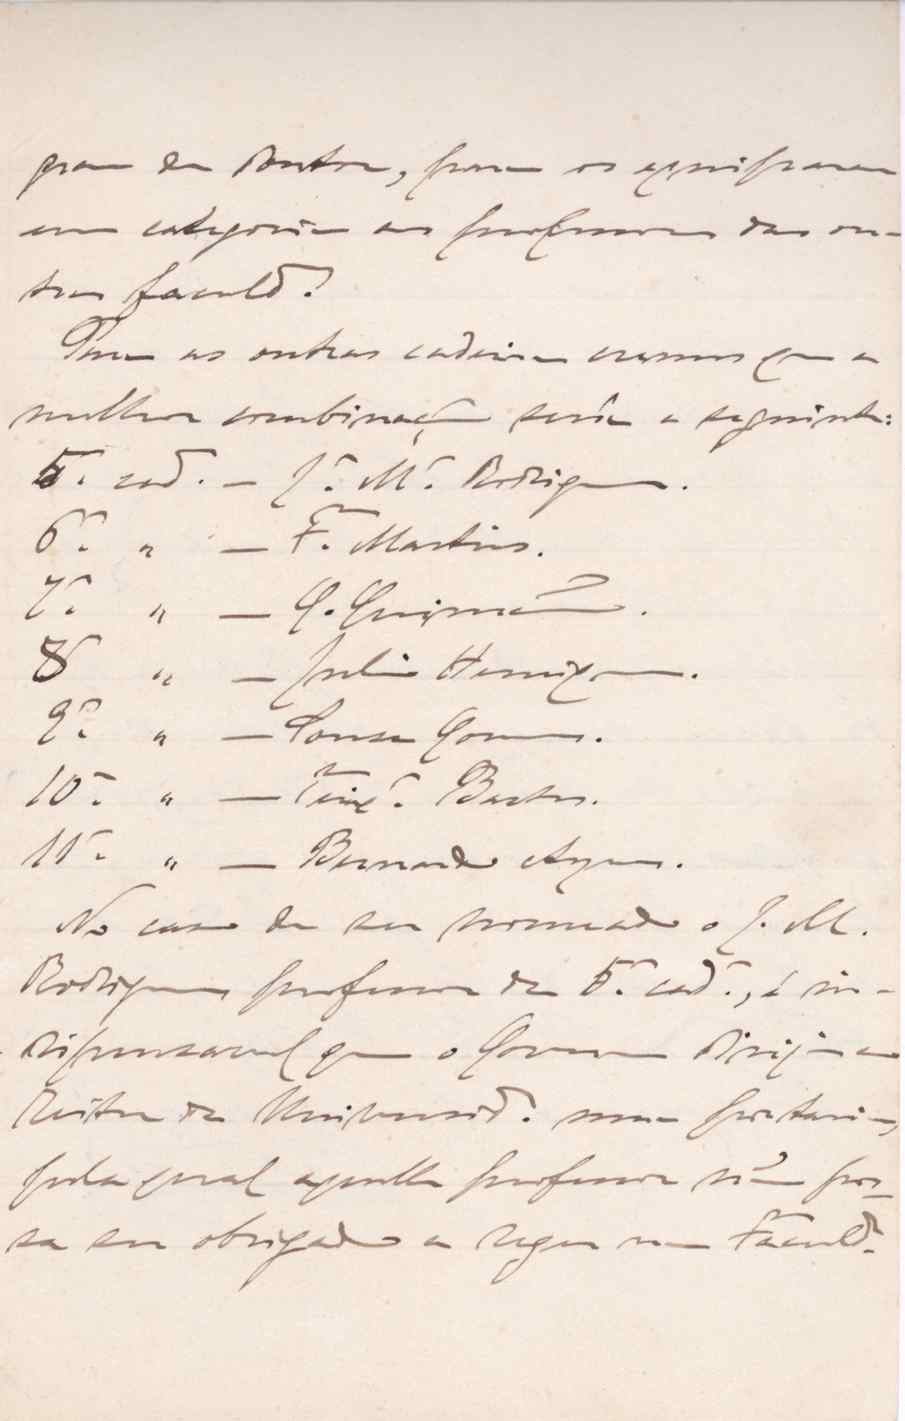 grau de Doutor, para os equipararem
em categoria aos professores das ou-
tras faculd.
Para as outras cadeiras cremos que a
melhor combinação seria a seguinte:
5.ª cad. — J.ᵉ M.ª Rodrigues.
6.ª " — F. Martins.
7.ª " — G. Guimarães.
8ª " — Julio Henriques.
9.ª " — Sousa Gomes.
10.ª " — Teix.ª Bastos.
11.ª " — Bernardo Ayres.
No caso de ser nomeado o J. M.
Rodrigues professor da 5.ª cad.ª, é in-
dispensavel que o Governo dirija ao
Reitor da Universid. uma portaria,
pela qual aquelle professor não pos-
sa ser obrigado a reger na Faculd.